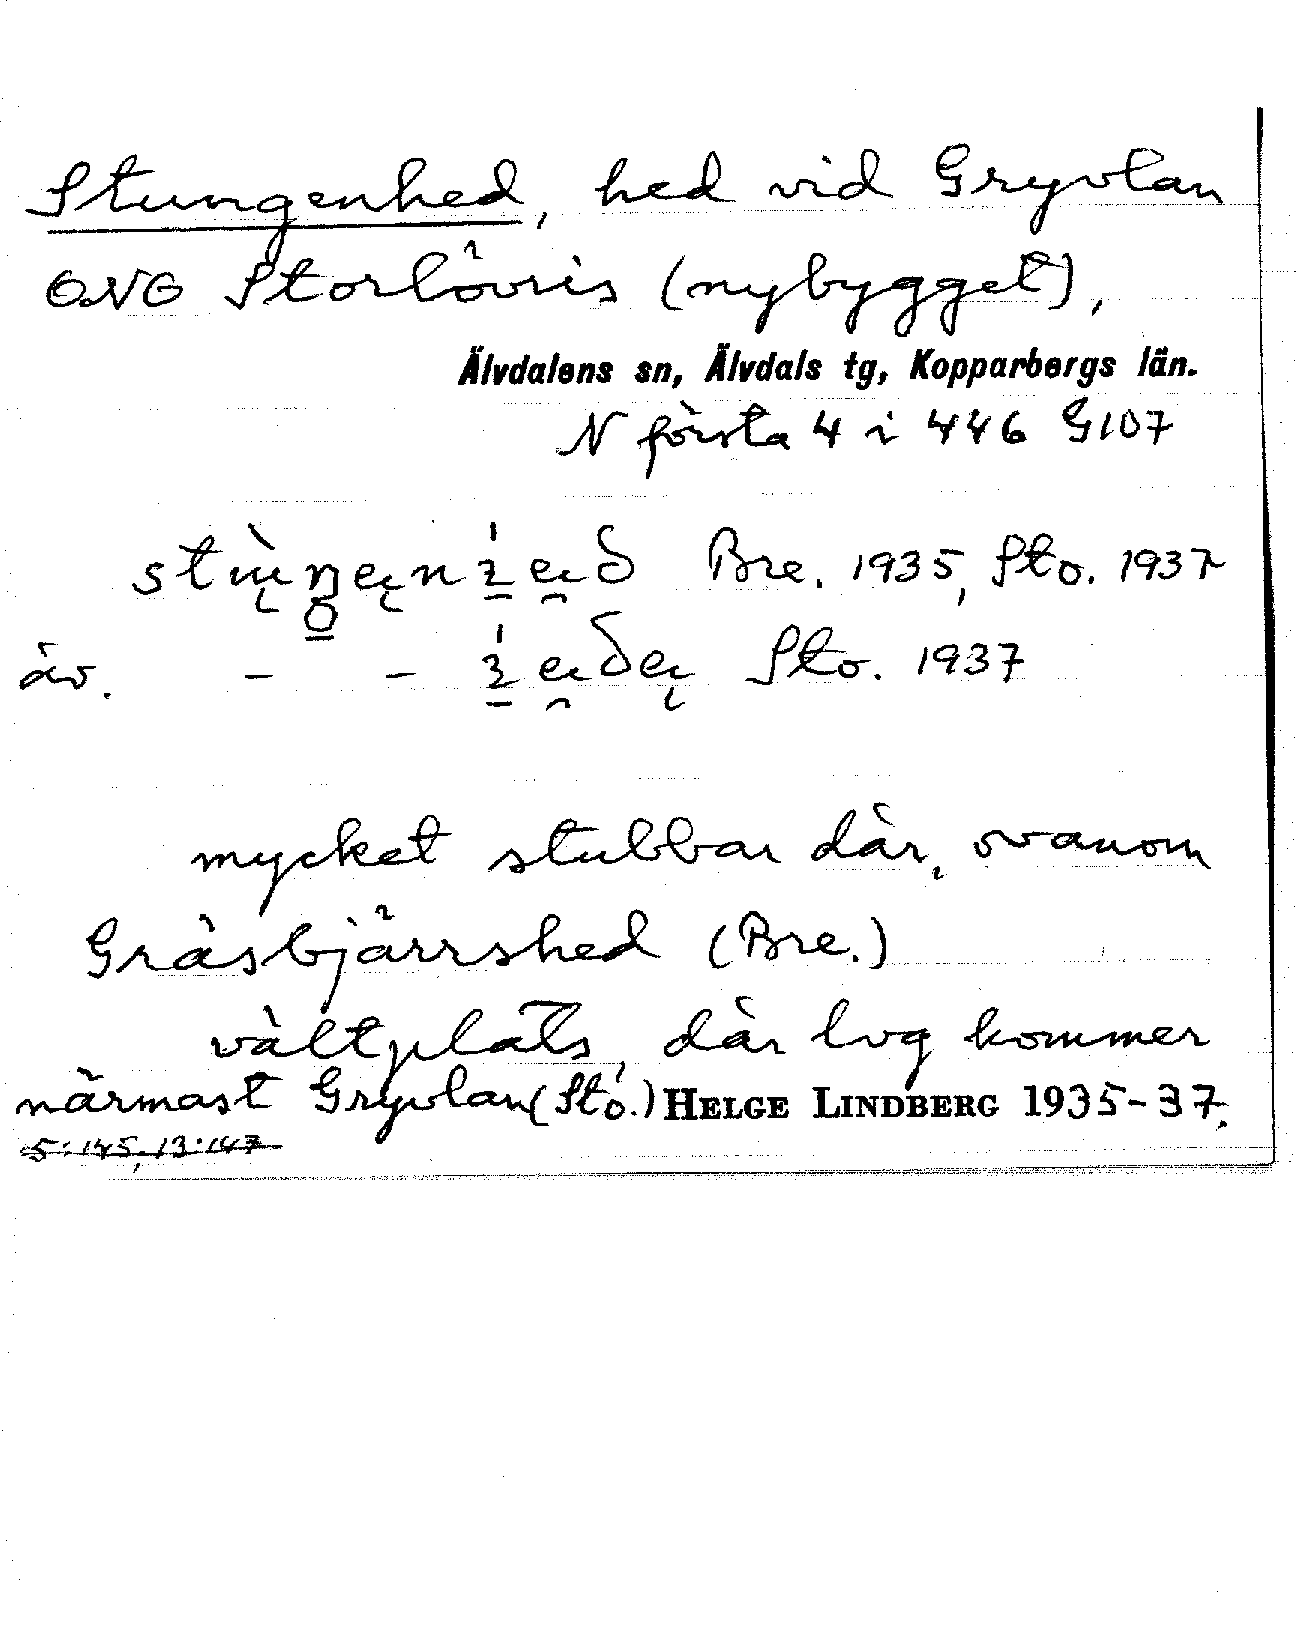 Stungenhed, hed vid Gryvlan
ONO Storlövris (nybygget),
Älvdalens sn, Älvdals tg, Kopparbergs län.
N första 4 i 446 G107
Bre. 1935, Sto. 1937
äv. – – Sto. 1937
mycket stubbar där, ovanom
Gräsbjärrshed (Bre.)
vältplats, där lvg kommer
närmast Gryvlan (Sto.) HELGE LINDBERG 1935-37.
5:145, 13:147